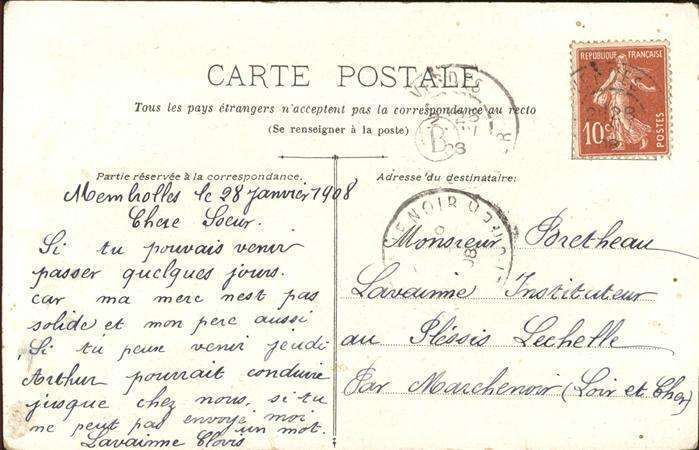 CARTE POSTALE
Tous les pays étrangers n'acceptent pas la correspondance au recto
(Se renseigner à la poste)
REPUBLIQUE FRANÇAISE
10c
POSTES
B
08
Partie réservée à la correspondance.
Membrolles le 28 janvier 1908
Chere Soeur.
Si tu pouvais venir
passer quelques jours.
car ma mere nest pas
solide et mon pere aussi
Si tu peux venir jeudi
Arthur pourrait conduire
jusque chez nous, si tu
ne peut pas envoye moi
un mot.
Lavainne Clovis
Adresse du destinataire:
Monsieur Bretheau
Lavainne Instituteur
au Pléssis Lechelle
Par Marchenoir (Loir et Cher)